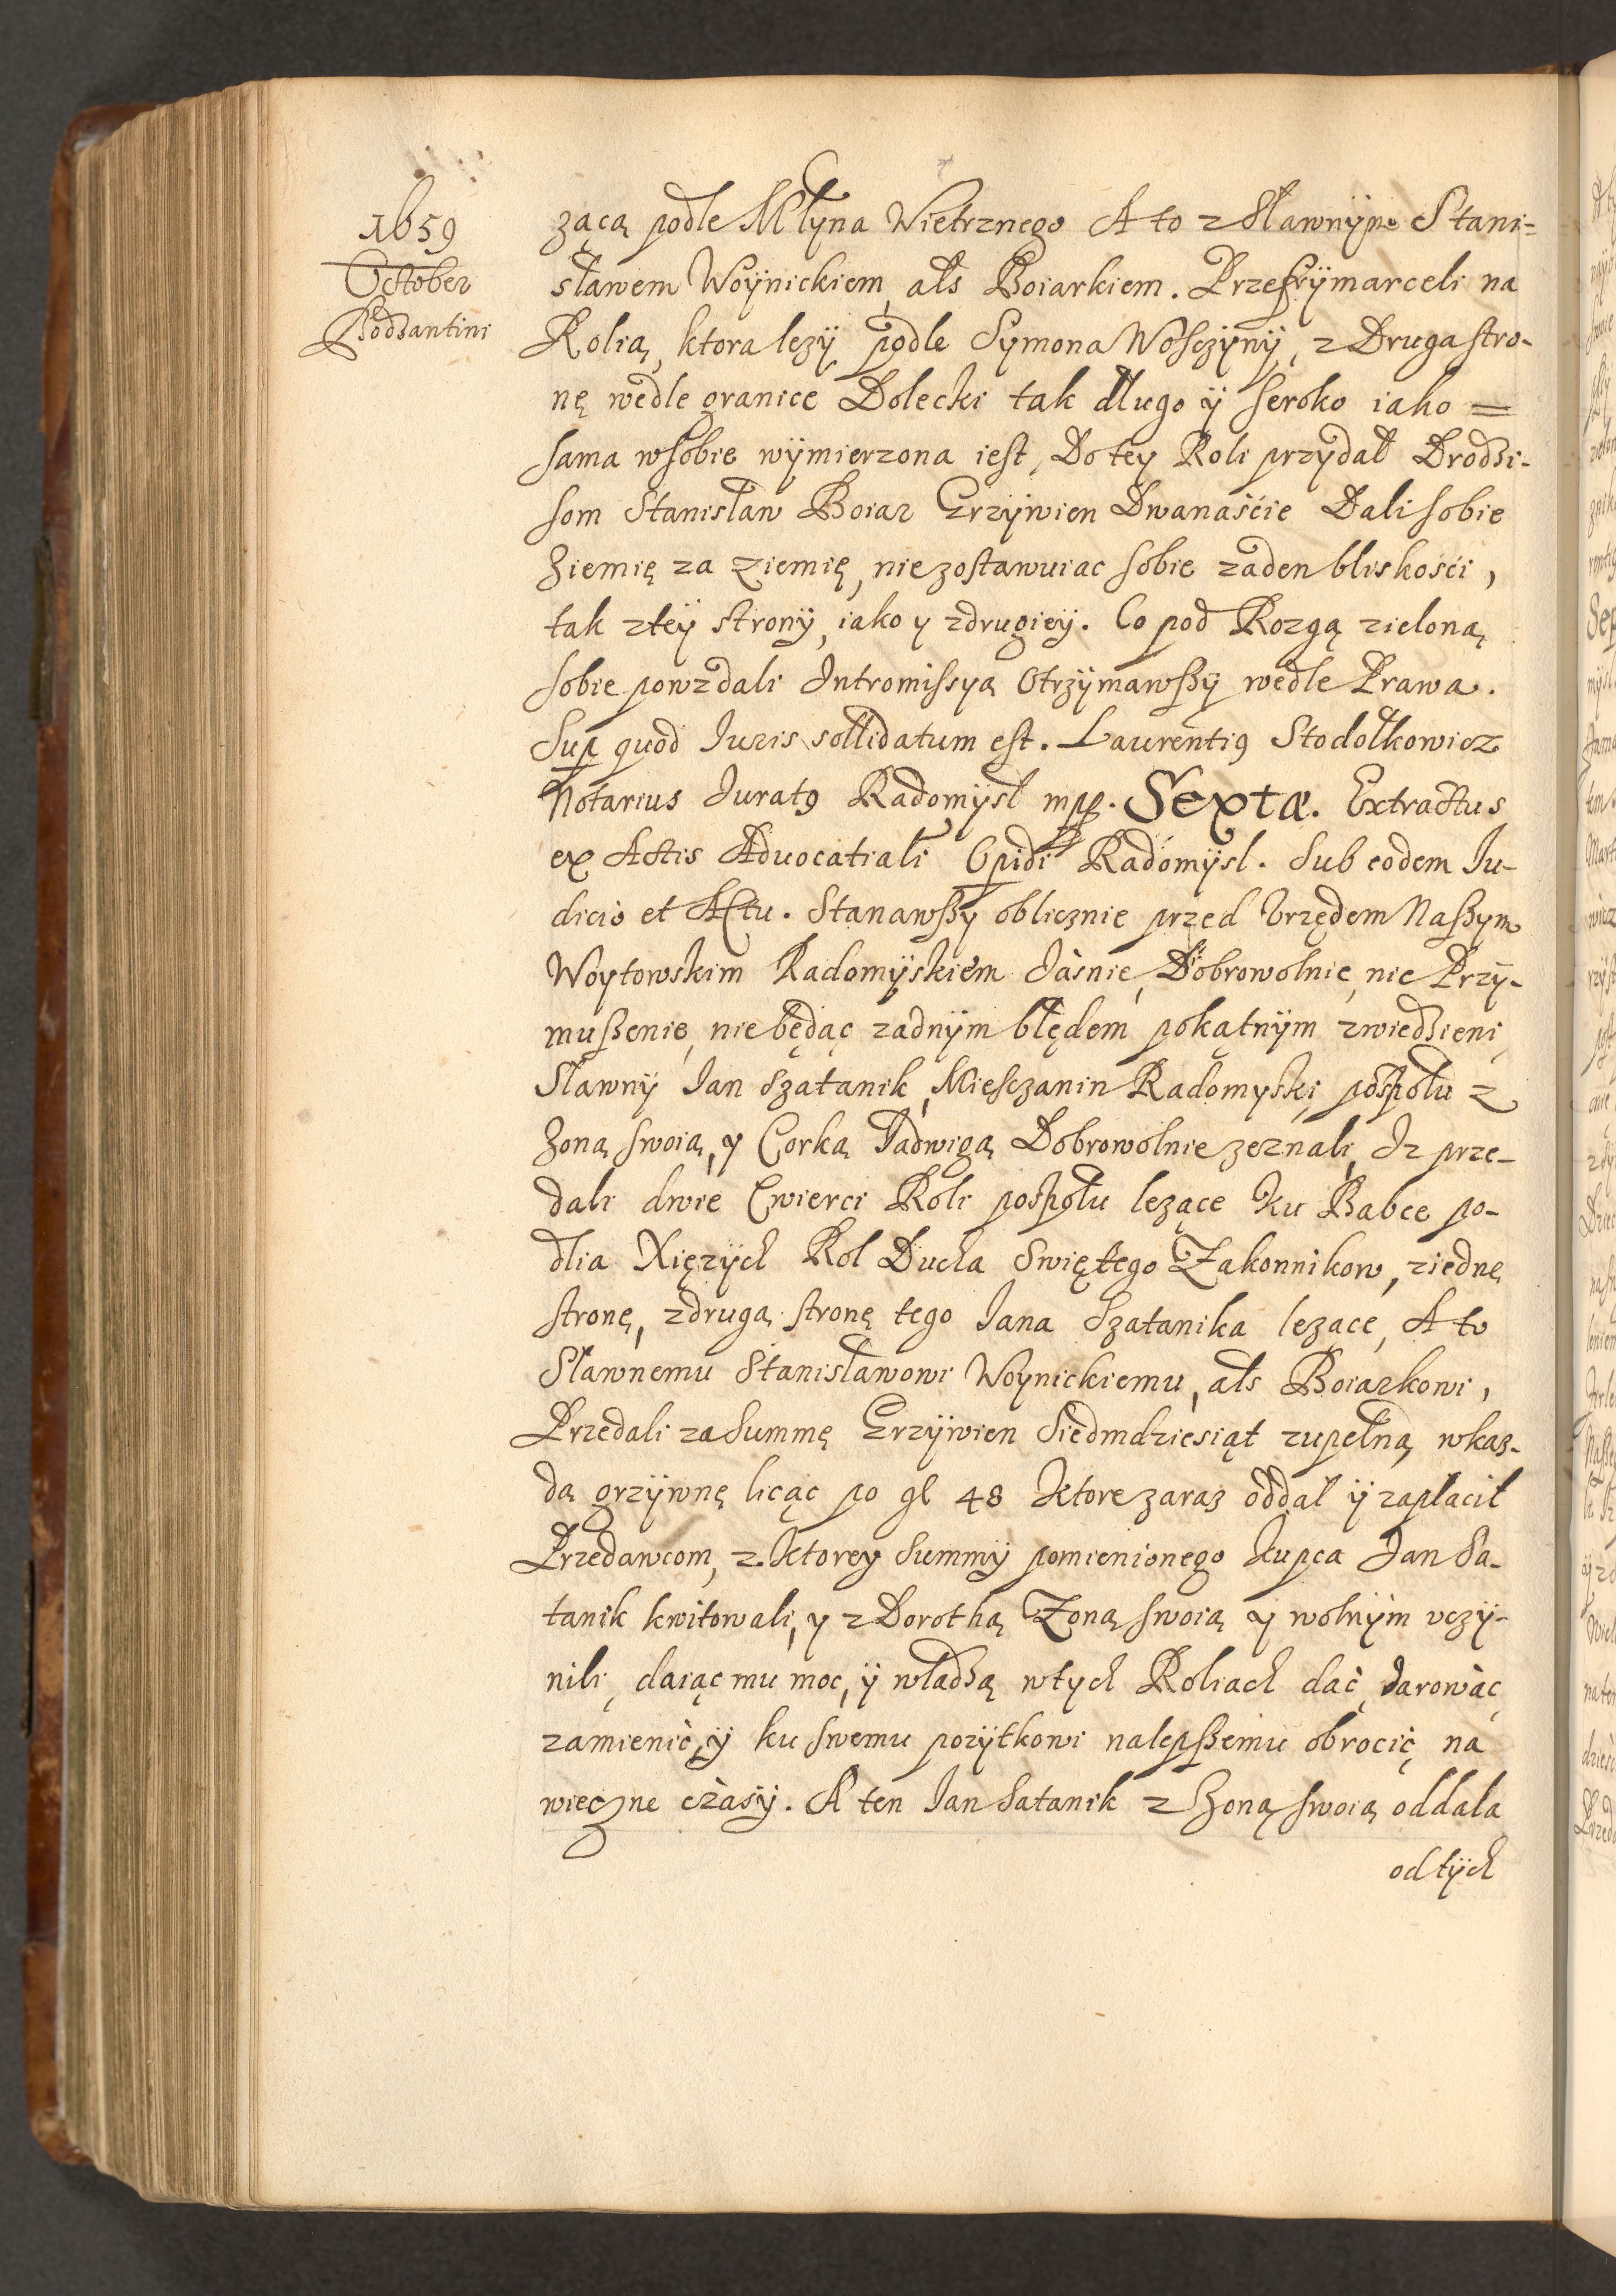 1659
October
Bodzantini
ząca podle Młyna Wietrznego A to z Sławnÿm Stani=
sławem Woÿnickiem, als Boiarkiem. Przefrÿmarceli na
Rolią, ktora lezÿ podle Symona Wosczÿnÿ, z Druga stro-
nę wedle granice Dolecki tak długo ÿ seroko iako =
sama wsobie wÿmierzona iest, Do tey Roli przydał Drodzi-
som Stanisław Boiar Grzÿwien Dwanaście Dali sobie
Ziemię za Ziemię, nie zostawuiac sobie zaden bliskości,
tak zteÿ stronÿ, iako y zdrugieÿ. Co pod Rozgą zieloną
sobie powzdali Intromissyą Otrzÿmawszÿ wedle Prawa.
Sup quod Iuris sollidatum est. Laurentiꝯ Stodołkowicz
Notarius Iuratꝯ Radomÿsł mpp. Sextæ. Extractus
ex Actis Aduocatiali Opidi Radomÿsl. Sub eodem Iu-
dicio et Actu. Stanawszy oblicznie przed Vrzędem Naszym
Woytowskim Radomÿskiem Jaśnie, Dobrowolnie, nie Przÿ-
muszenie, nie będąc zadnÿm błędem pokątnÿm zwiedzieni,
Sławnÿ Jan Szatanik, Miesczanin Radomyski, pospołu z
Zoną swoią, y Corką Jadwigą Dobrowolnie zeznali, Iz prze-
dali dwie Cwierci Roli pospołu lezące ku Babce po-
dlia Xięzych Rol Ducha Swiętego Zakonnikow, ziednę
stronę, zdrugą stronę tego Jana Szatanika lezace, A to
Sławnemu Stanisławowi Woynickiemu, als Boiarkowi,
Przedali za Summę Grzÿwien Siedmdziesiąt zupełną, wkaz-
dą grzÿwnę licąc po gl 48 ktore zaraz oddał ÿ zapłacił
Przedawcom, z ktorey Summÿ pomienionego kupca Jan Sa-
tanik kwitowali, y z Dorothą Zoną swoią y wolnÿm vczÿ-
nili, daiąc mu moc, ÿ władzą wtych Roliach dać, darować,
zamienić, ÿ ku swemu pozÿtkowi nalepszemu obrocić, na
wieczne czasÿ. A ten Jan Satanik z Zoną swoią oddala
od tÿch